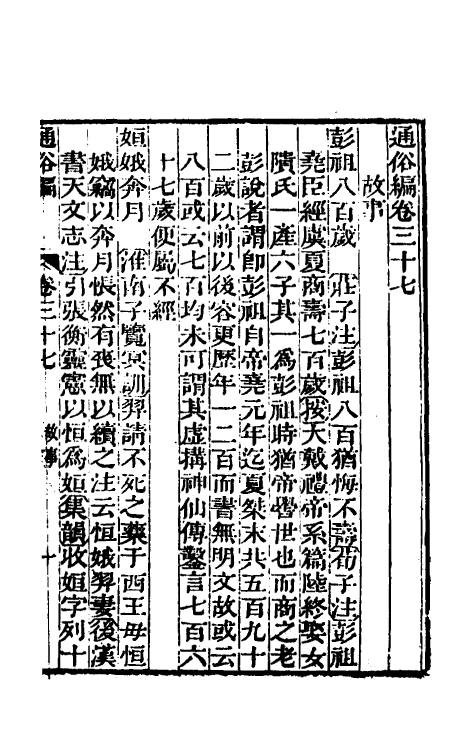 通俗編卷三十七
故事
彭祖八百歲　莊子注彭祖八百猶悔不壽荀子注彭祖
堯臣經虞夏商壽七百歲按大戴禮帝系篇陸終娶女
隤氏一產六子其一爲彭祖時猶帝嚳世也而商之老
彭說者謂卽彭祖自帝堯元年迄夏桀末共五百九十
二歲以前以後容更歷年一二百而書無明文故或云
八百或云七百均未可謂其虛搆神仙傳鑿言七百六
十七歲便屬不經
姮娥奔月　淮南子覽冥訓羿請不死之藥于西王母恒
娥竊以奔月悵然有喪無以續之注云恒娥羿妻後漢
書天文志注引張衡靈憲以恒爲姮集韻收姮字列十
通俗編　卷三十七　故事　十